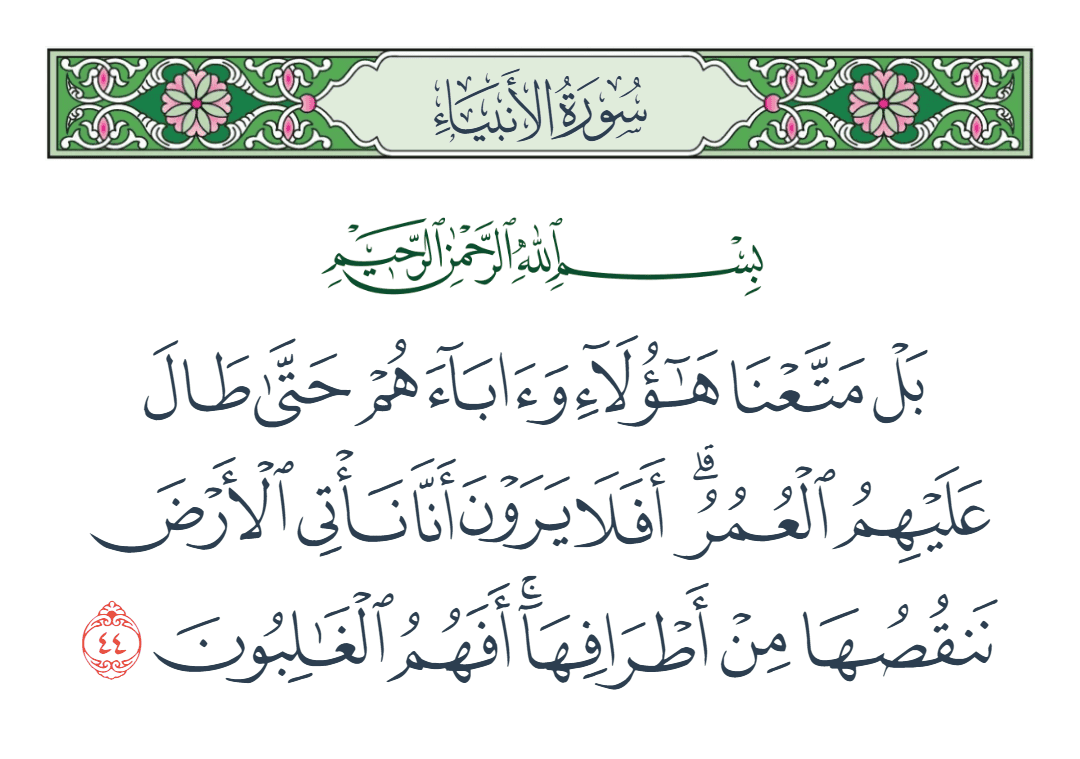 سُورَةُ الأَنبِيَاءِ
بِسْمِ ٱللَّهِ ٱلرَّحْمَٰنِ ٱلرَّحِيمِ
بَلْ مَتَّعْنَا هَٰٓؤُلَآءِ وَءَابَآءَهُمْ حَتَّىٰ طَالَ
عَلَيْهِمُ ٱلْعُمُرُ ۗ أَفَلَا يَرَوْنَ أَنَّا نَأْتِى ٱلْأَرْضَ
نَنقُصُهَا مِنْ أَطْرَافِهَآ ۚ أَفَهُمُ ٱلْغَٰلِبُونَ ٤٤